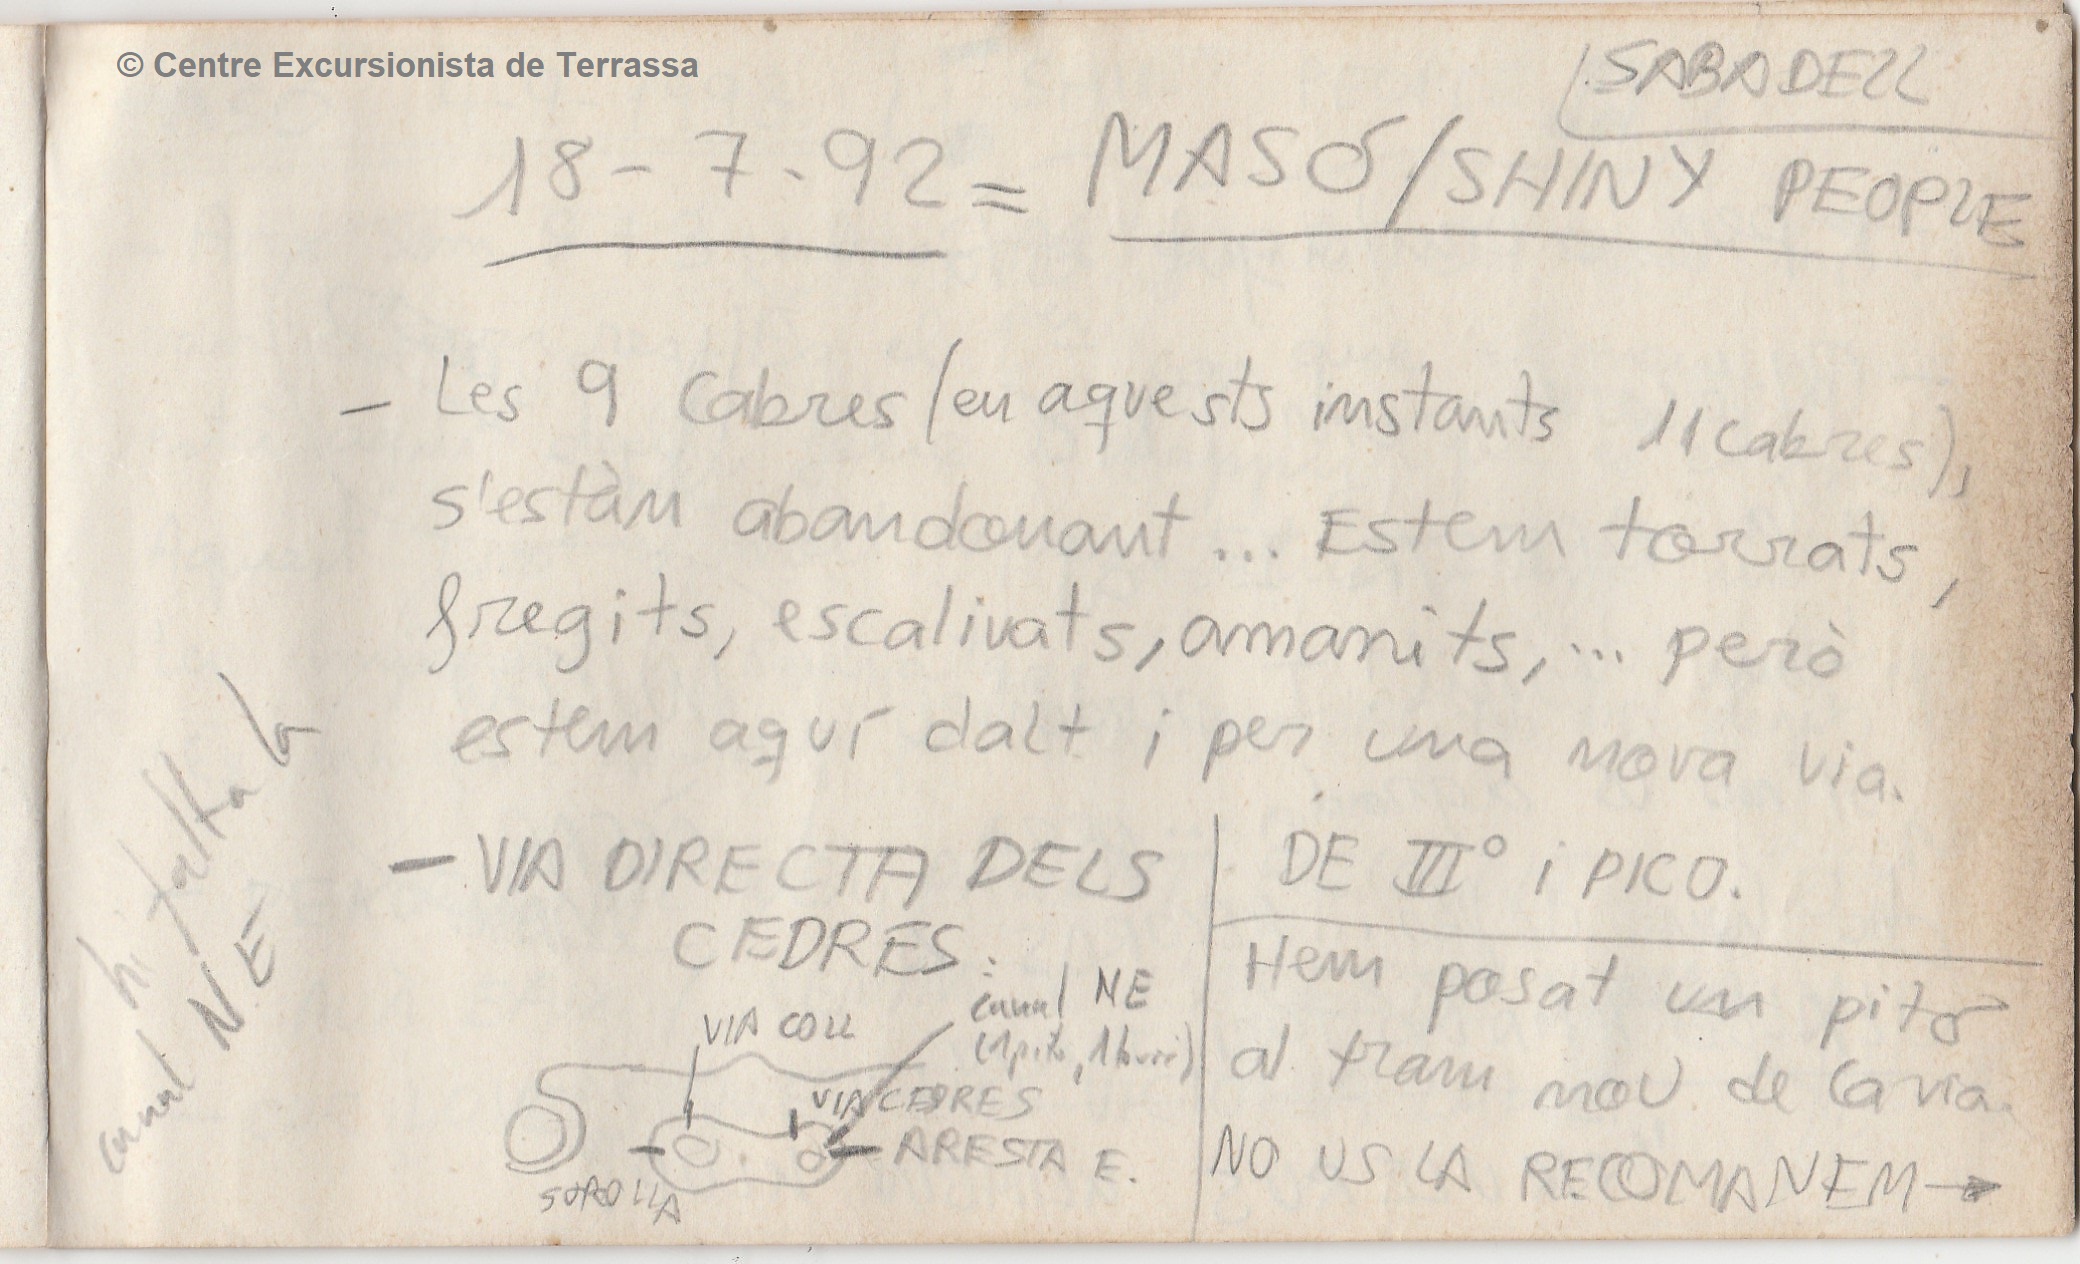 © Centre Excursionista de Terrassa
SABADELL
18-7-92 = MASÓ/SHINY PEOPLE
- Les 9 Cabres (en aquests instants 11 cabres),
s'estàn abandonant... Estem torrats,
fregits, escalivats, amanits,... però
estem aquí dalt i per una nova via.
- VIA DIRECTA DELS
CEDRES.
DE III° i PICO.
Hem posat un pitó
al tram nou de la via.
NO US LA RECOMANEM →
VIA COLL
canal NE
(1 pitó, 1 burí)
VIA CEDRES
ARESTA E.
SOROLLA
hi falta la
canal NE